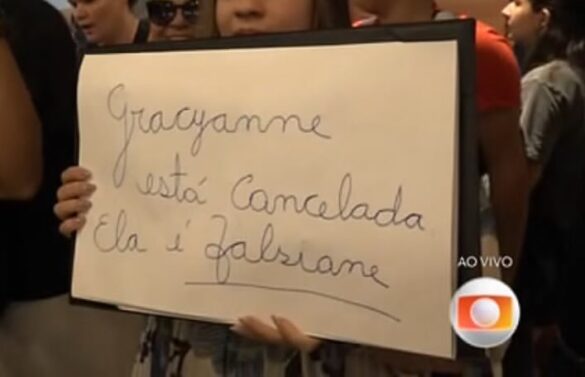 Gracyanne
está Cancelada
Ela é falsiane
AO VIVO